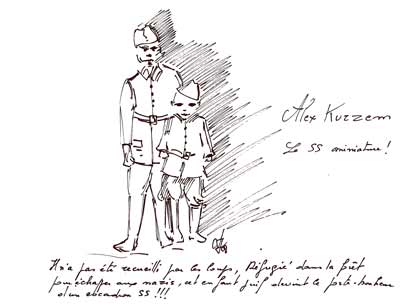 Alex Kurzem
Le SS miniature !
Il n'a pas été recueilli par les loups, Réfugié dans la forêt
pour échapper aux nazis, cet enfant juif devint le porte-bonheur
d'un escadron SS !!!